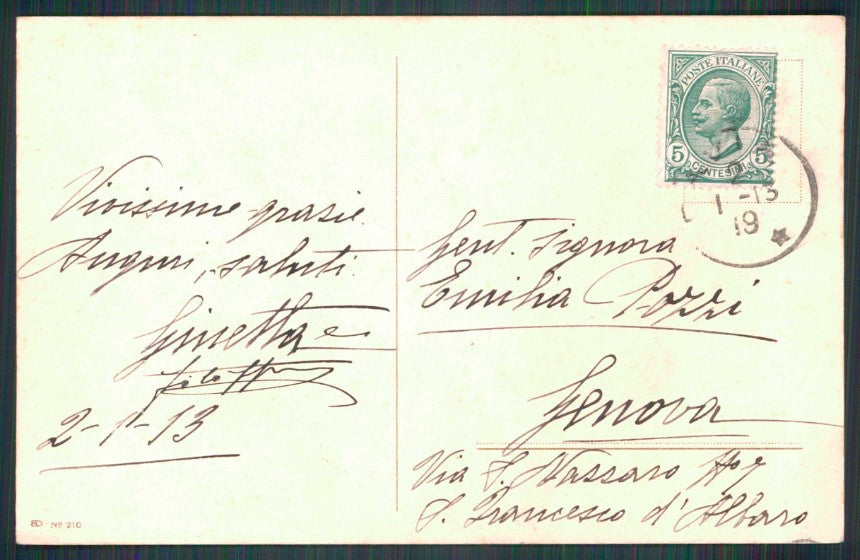 Vivissime grazie.
Auguri, saluti.
Ginetta e
2-1-13
Nº 210
POSTE ITALIANE
5 CENTESIMI 5
1-13
19
Gent. Signora
Emilia Pozzi
Genova
Via S. Nazzaro Nº 7
S. Francesco d'Albaro